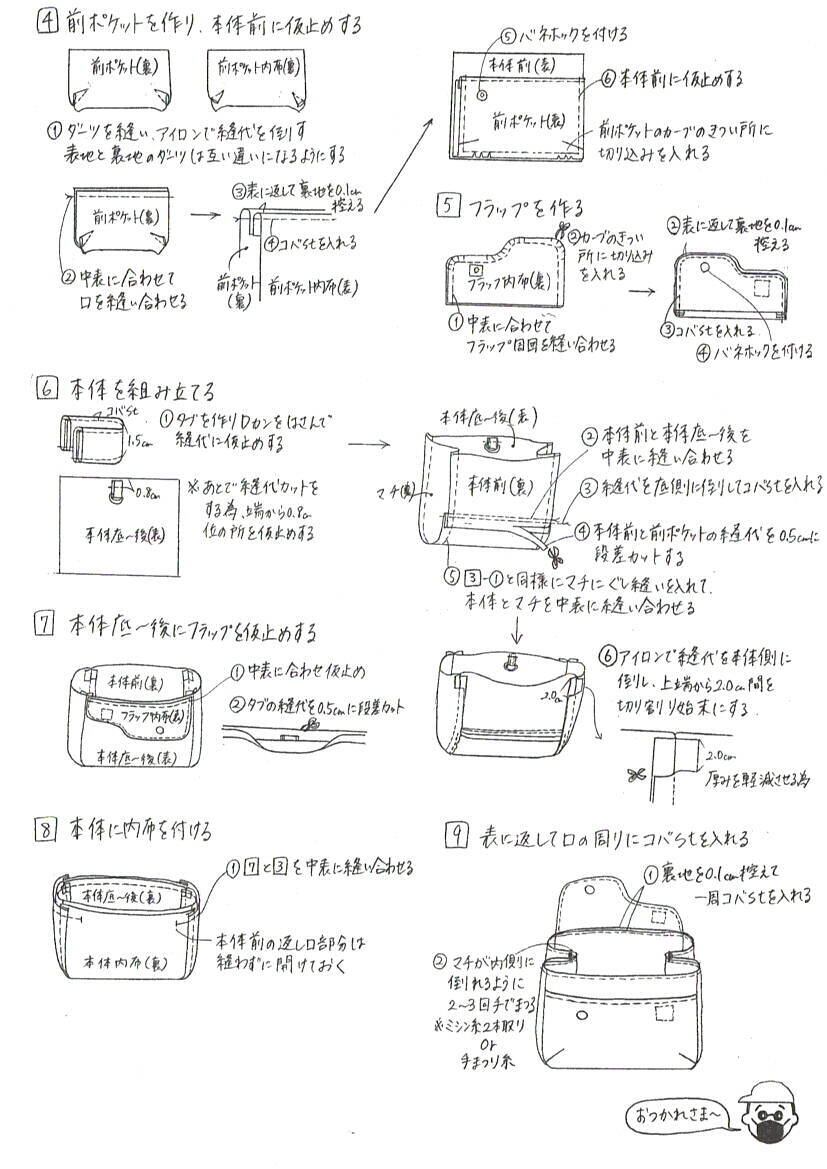 4 前ポケットを作り、本体前に仮止めする
前ポケット(裏)
前ポケット内布(裏)
① ダーツを縫い、アイロンで縫代を倒す
表地と裏地のダーツは互い違いになるようにする
前ポケット(裏)
② 中表に合わせて
口を縫い合わせる
③表に返して裏地を0.1cm
控える
④コバstを入れる
前ポケット
(裏)
前ポケット内布(表)
⑤バネホックを付ける
本体前(表)
⑥本体前に仮止めする
前ポケット(表)
前ポケットのカーブのきつい所に
切り込みを入れる
5 フラップを作る
②カーブのきつい
所に切り込み
を入れる
フラップ内布(裏)
① 中表に合わせて
フラップ周囲を縫い合わせる
②表に返して裏地を0.1cm
控える
③コバstを入れる
④バネホックを付ける
6 本体を組み立てる
コバst
1.5cm
①タブを作りDカンをはさんで
縫代に仮止めする
0.8cm
本体底～後(表)
※あとで縫代カットを
する為、端から0.8cm
位の所を仮止めする
本体底～後(表)
マチ(裏)
本体前(裏)
② 本体前と本体底～後を
中表に縫い合わせる
③縫代を底側に倒してコバstを入れる
④本体前と前ポケットの縫代を0.5cmに
段差カットする
⑤ 3-①と同様にマチにぐし縫いを入れて、
本体とマチを中表に縫い合わせる
2.0cm
⑥アイロンで縫代を本体側に
倒し、上端から2.0cm間を
切り割り始末にする。
2.0cm
厚みを軽減させる為
7 本体底～後にフラップを仮止めする
本体前(裏)
フラップ内布(表)
本体底～後(表)
①中表に合わせ仮止め
②タブの縫代を0.5cmに段差カット
8 本体に内布を付ける
本体底～後(裏)
本体内布(裏)
①7と3を中表に縫い合わせる
本体前の返し口部分は
縫わずに開けておく
9 表に返して口の周りにコバstを入れる
①裏地を0.1cm控えて
一周コバstを入れる
② マチが内側に
倒れるように
2～3回手でまつる
※ミシン糸2本取り
or
手まつり糸
おつかれさま～